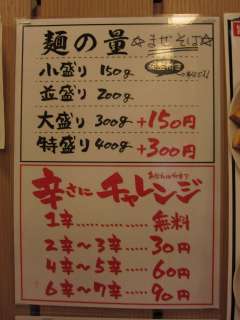 麺の量
☆まぜそば☆
小盛り 150g
並盛り 200g
大盛り 300g +150円
特盛り 400g +300円
辛さにチャレンジ
1辛 ........... 無料
2辛〜3辛 ....... 30円
4辛〜5辛 ....... 60円
6辛〜7辛 ....... 90円